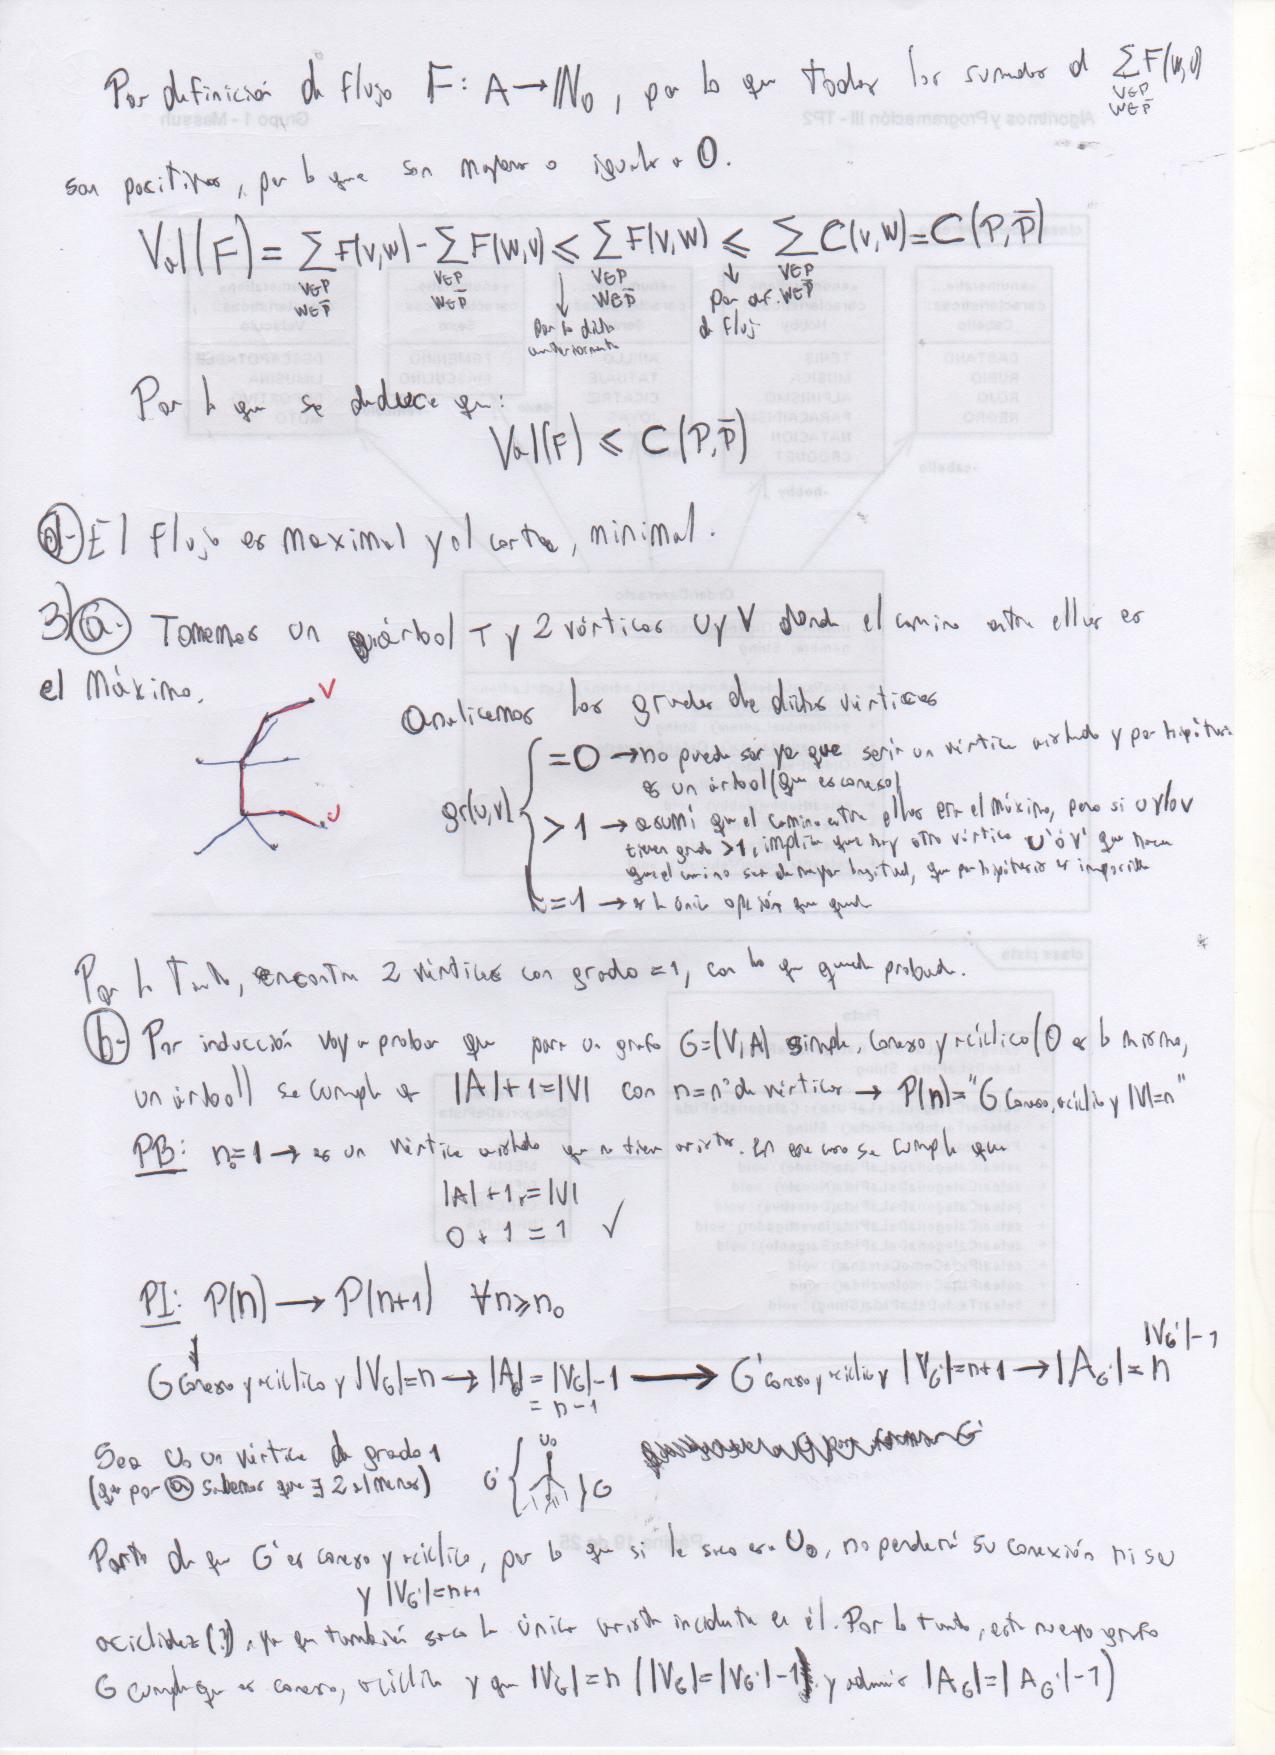 Por definición de flujo F: A → ℕ₀, por lo que todos los sumandos de ∑ F(w,v)
v∈P
w∈P̄
son positivos, por lo que son mayores o iguales a 0.
Val(F) = ∑ F(v,w) - ∑ F(w,v) ≤ ∑ F(v,w) ≤ ∑ C(v,w) = C(P,P̄)
v∈P v∈P v∈P v∈P
w∈P̄ w∈P̄ w∈P̄ w∈P̄
↓ Por lo dicho anteriormente
↓ por def. de flujo
Por lo que se deduce que:
Val(F) ≤ C(P,P̄)
d- El flujo es maximal y el corte, minimal.
3) a. Tomemos un árbol T y 2 vértices U y V donde el camino entre ellos es
el máximo.
V
U
Analicemos los grados de dichos vértices
gr(u,v)
=0 → no puede ser ya que sería un vértice aislado y por hipótesis
es un árbol (que es conexo)
>1 → asumí que el camino entre ellos era el máximo, pero si u y/o v
tienen grado >1, implica que hay otro vértice U' ó V' que hace
que el camino sea de mayor longitud, que por hipótesis es imposible
=1 → es la única opción que queda
Por lo tanto, encontré 2 vértices con grado = 1, con lo que queda probado.
b- Por inducción voy a probar que para un grafo G=(V,A) simple, conexo y acíclico (O es lo mismo,
un árbol) se cumple |A|+1=|V| con n=nº de vértices → P(n)="G conexo, acíclico y |V|=n"
PB: n₀=1 → es un vértice aislado que no tiene aristas. En ese caso se cumple que
|A|+1=|V|
0+1=1 ✓
PI: P(n) → P(n+1) ∀n≥n₀
G conexo y acíclico y |V_G|=n → |A_G|=|V_G|-1 → G' conexo y acíclico y |V_G'|=n+1 → |A_G'|=n
= n-1
|V_G'|-1
Sea U₀ un vértice de grado 1
(que por a sabemos que ∃ 2 al menos)
G' { U₀ } G
Parto de que G' es conexo y acíclico, por lo que si le saco ese U₀, no perderá su conexión ni su
y |V_G'|=n+1
aciclidez(?), ya que también saco la única arista incidente en él. Por lo tanto, este nuevo grafo
G cumple que es conexo, acíclico y que |V_G|=n (|V_G|=|V_G'|-1) y además |A_G|=|A_G'|-1)